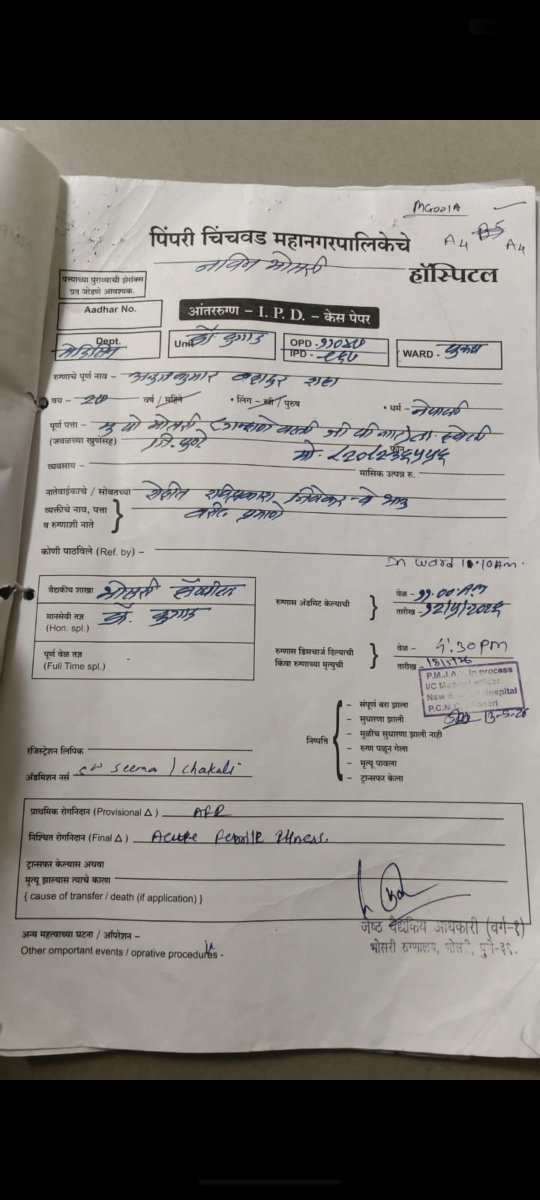 MG001A
A4 A4
पिंपरी चिंचवड महानगरपालिकेचे
नविन भोसरी हॉस्पिटल
पत्त्याच्या पुराव्याची झेरॉक्स
प्रत जोडणे आवश्यक.
Aadhar No.
आंतररुग्ण – I. P. D. – केस पेपर
Dept. मेडिसिन
Unit डॉ
OPD
IPD -
WARD - पुरुष
रुग्णाचे पूर्ण नाव – बहादुर शहा
वय – २७ वर्ष / महिने • लिंग – स्त्री / पुरुष • धर्म – नेपाळी
पूर्ण पत्ता – मु पो भोसरी ता. हवेली
(जवळच्या खुणेसह) जि. पुणे मो. फोन
व्यवसाय – मासिक उत्पन्न रु.
नातेवाईकाचे / सोबतच्या
व्यक्तीचे नाव, पत्ता वरील प्रमाणे
व रुग्णाशी नाते
कोणी पाठविले (Ref. by) –
In ward 11.10Am.
वैद्यकीय शाखा भोसरी हॉस्पीटल
मानसेवी तज्ञ डॉ.
(Hon. spl.)
पूर्ण वेळ तज्ञ
(Full Time spl.)
रुग्णास ॲडमिट केल्याची
वेळ – ११.००AM
तारीख – १२/५/२०२६
रुग्णास डिसचार्ज दिल्याची
किंवा रुग्णाच्या मृत्यूची
वेळ – 4:30PM
तारीख – 18/5/26
P.M.J.A.Y. In process
I/C Medical officer
New Bhosari Hospital
P.C.M.C. Bhosari
13-5-26
निष्पत्ति
- संपूर्ण बरा झाला
- सुधारणा झाली
- मुळीच सुधारणा झाली नाही
- रुग्ण पळून गेला
- मृत्यू पावला
- ट्रान्सफर केला
रजिस्ट्रेशन लिपिक
ॲडमिशन नर्स Sr Seema / Chakuli
प्राथमिक रोगनिदान (Provisional Δ)
निश्चित रोगनिदान (Final Δ) Acute Febrile Illness.
ट्रान्सफर केल्यास अथवा
मृत्यू झाल्यास त्याचे कारण
{ cause of transfer / death (if application) }
जेष्ठ वैद्यकिय अधिकारी (वर्ग-१)
भोसरी रुग्णालय, भोसरी, पुणे-३९.
अन्य महत्वाच्या घटना / ऑपरेशन –
Other omportant events / oprative procedures -